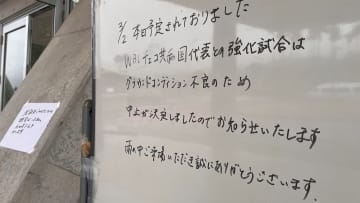 3/2 本日予定されておりました
WBCチェコ共和国代表との強化試合は
グラウンドコンディション不良のため
中止が決定しましたのでお知らせいたします
雨の中ご来場いただき誠にありがとうございます.